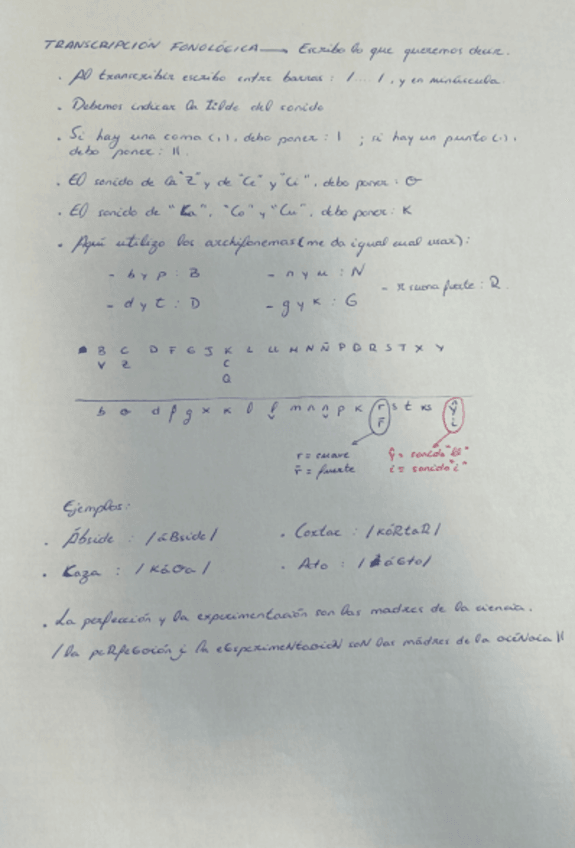 TRANSCRIPCIÓN FONOLÓGICA → Escribo lo que queremos decir.
. Al transcribir escribo entre barras: /.... /, y en minúscula.
. Debemos indicar la tilde del sonido
. Si hay una coma (,), debo poner: | ; si hay un punto (.),
debo poner: ||.
. El sonido de la "Z" y de "Ce" y "Ci", debo poner: Θ
. El sonido de "Ca", "Co" y "Cu", debo poner: K
. Aquí utilizo los archifonemas (me da igual cual usar):
- b y p : B - n y m : N
- r suena fuerte : R.
- d y t : D - g y k : G
B C D F G J K L LL M N Ñ P R S T X Y
V Z C
Q
b θ d f g x k l m n p k r s t ks ŷ
r̄ i
r = suave ŷ = sonido "ll"
r̄ = fuerte i = sonido "i"
Ejemplos:
. Ábside : /áBside/ . Cortar : /kóRtaR/
. Caza : /káΘa/ . Acto : /áGto/
. La perfección y la experimentación son las madres de la ciencia.
/la peRfeGΘión i la eGsperimeNtaΘioN soN las mádres de la ΘiéNΘia ||